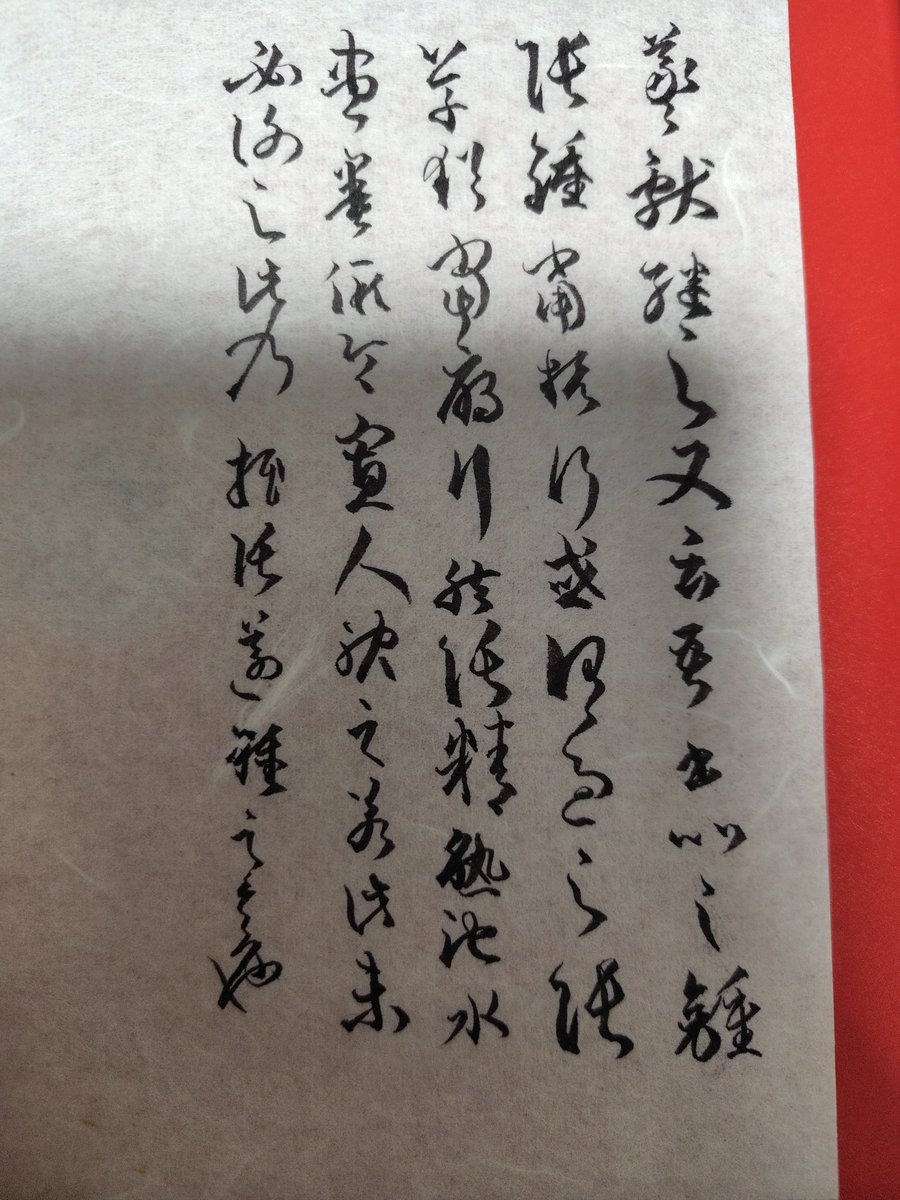 羲獻繼之又云吾書比之鍾
張鍾當抗行或謂過之張
草猶當雁行然張精熟池水
盡墨假令寡人耽之若此未
必謝之此乃推張邁鍾之意也